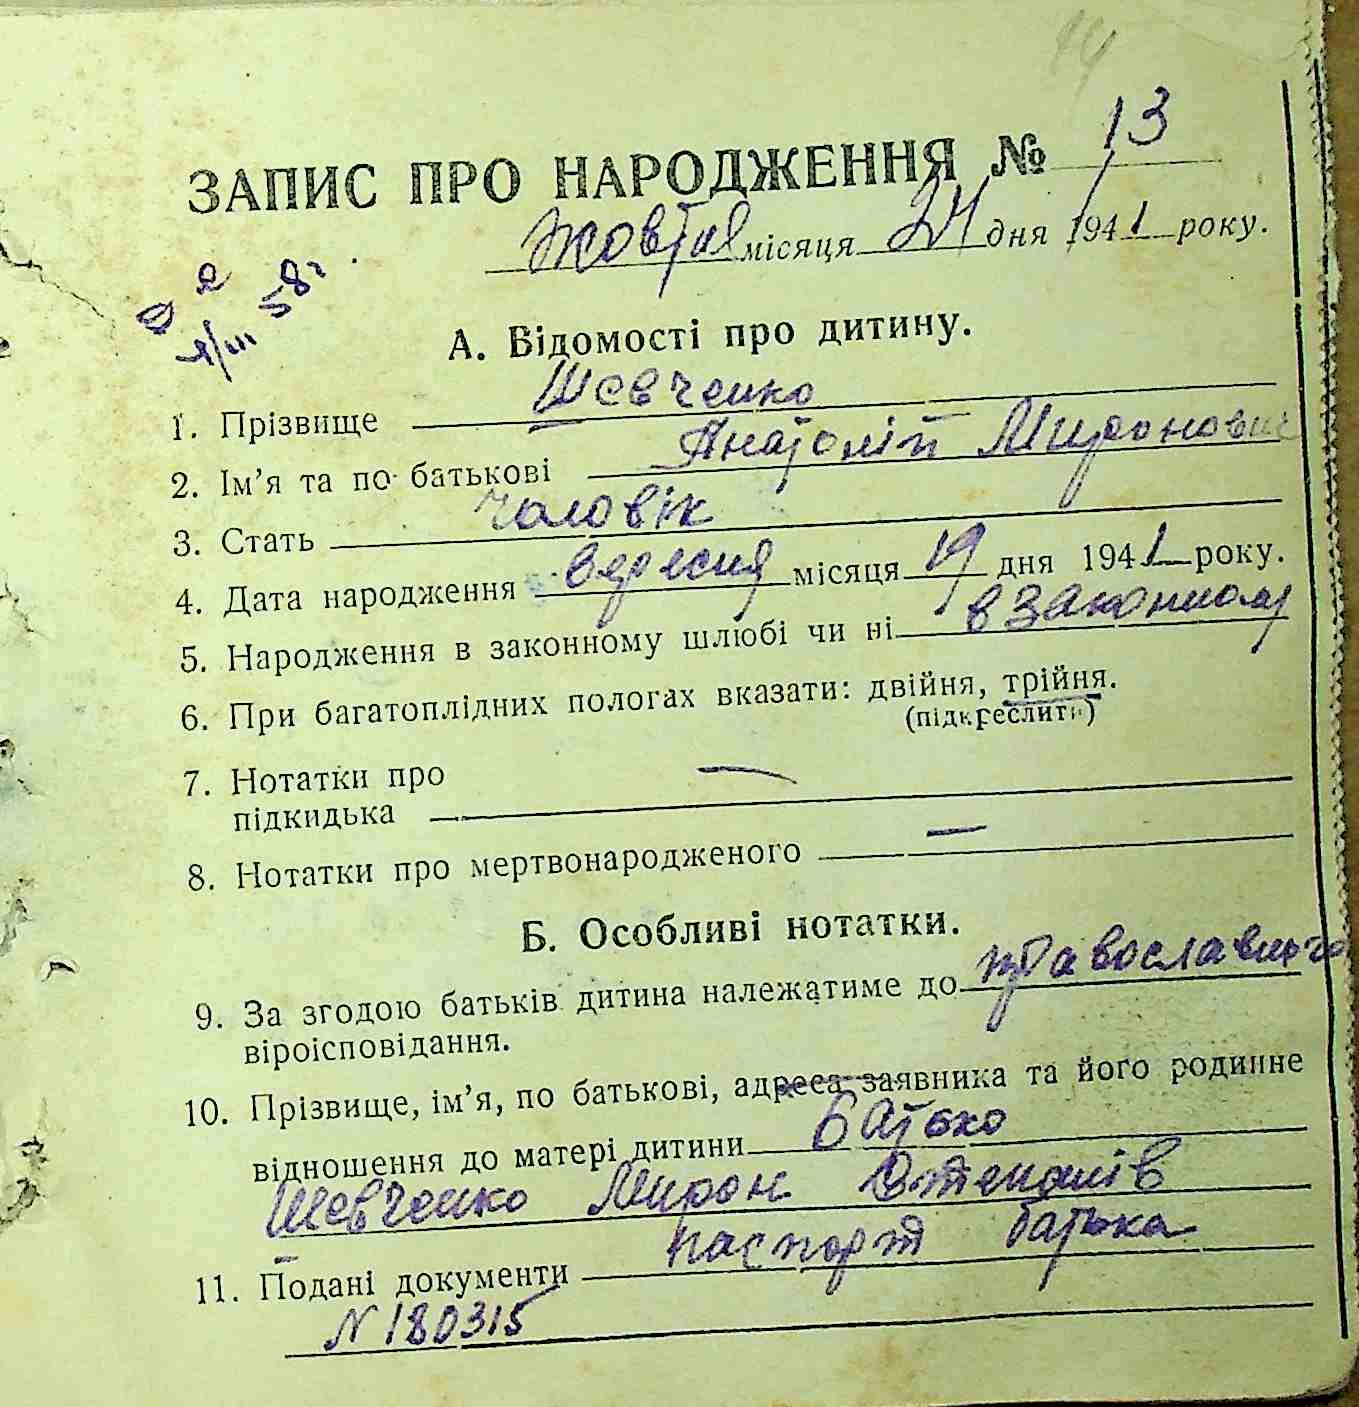 14
ЗАПИС ПРО НАРОДЖЕННЯ № 13
Жовтня місяця 24 дня 1941 року.
1/III 58г.
А. Відомості про дитину.
1. Прізвище Шевченко
2. Ім'я та по-батькові Анатолій Миронович
3. Стать чоловік
4. Дата народження вересня місяця 19 дня 1941 року.
5. Народження в законному шлюбі чи ні в законному
6. При багатоплідних пологах вказати: двійня, трійня.
(підкреслити)
7. Нотатки про
підкидька —
8. Нотатки про мертвонародженого —
Б. Особливі нотатки.
9. За згодою батьків дитина належатиме до православного
віроісповідання.
10. Прізвище, ім'я, по батькові, адреса заявника та його родинне
відношення до матері дитини батько
Шевченко Мирон Степанів
11. Подані документи паспорт батька
N 180315